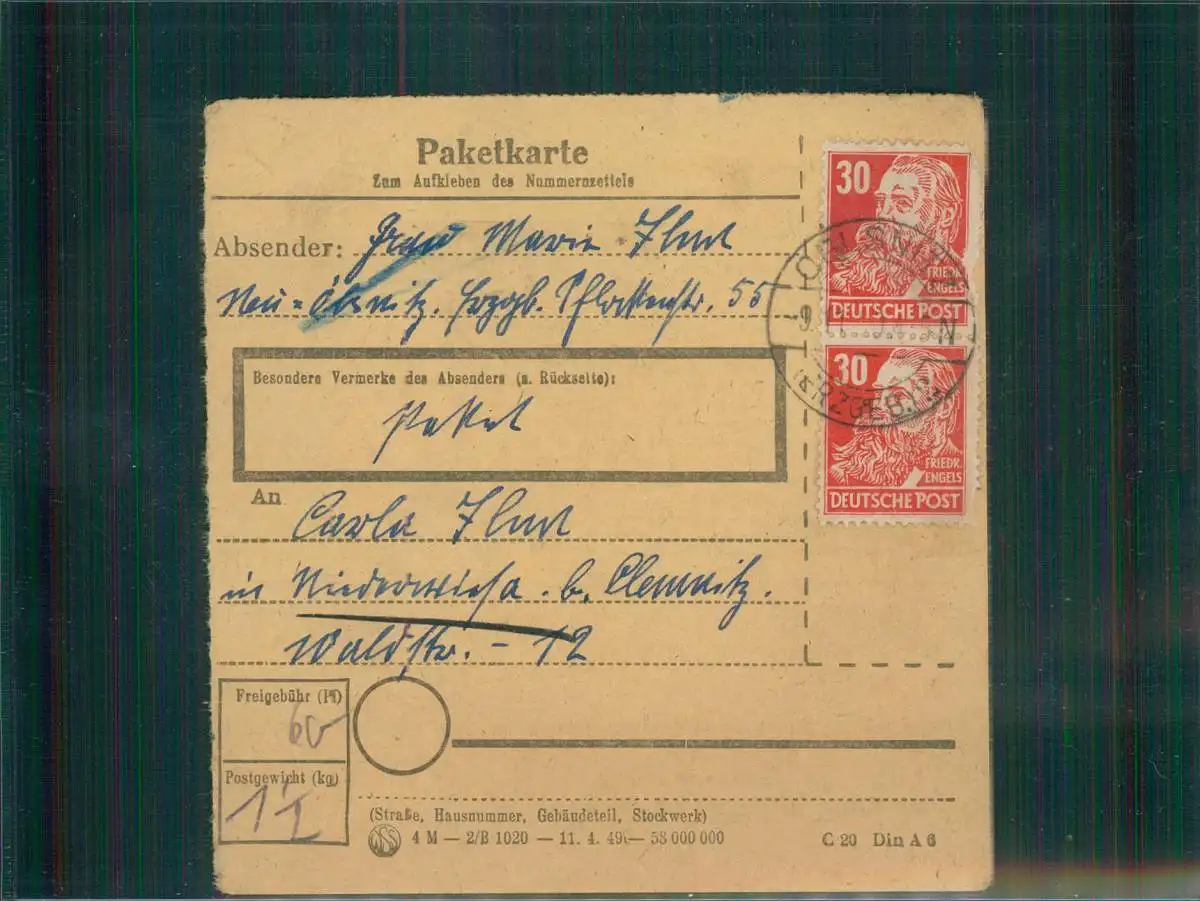 Paketkarte
Zum Aufkleben des Nummernzettels
Absender: Frau Marie
Neu-Ölsnitz. Erzgb. 55
Besondere Vermerke des Absenders (s. Rückseite):
Paket
An
Carla
in Niederwiesa. b. Chemnitz.
Waldstr. - 12
Freigebühr (Pf)
60
Postgewicht (kg)
(Straße, Hausnummer, Gebäudeteil, Stockwerk)
4 M — 2/B 1020 — 11. 4. 49 — 58 000 000
C 20 Din A 6
30
FRIEDR.
ENGELS
DEUTSCHE POST
30
FRIEDR.
ENGELS
DEUTSCHE POST
(ERZGEB.)